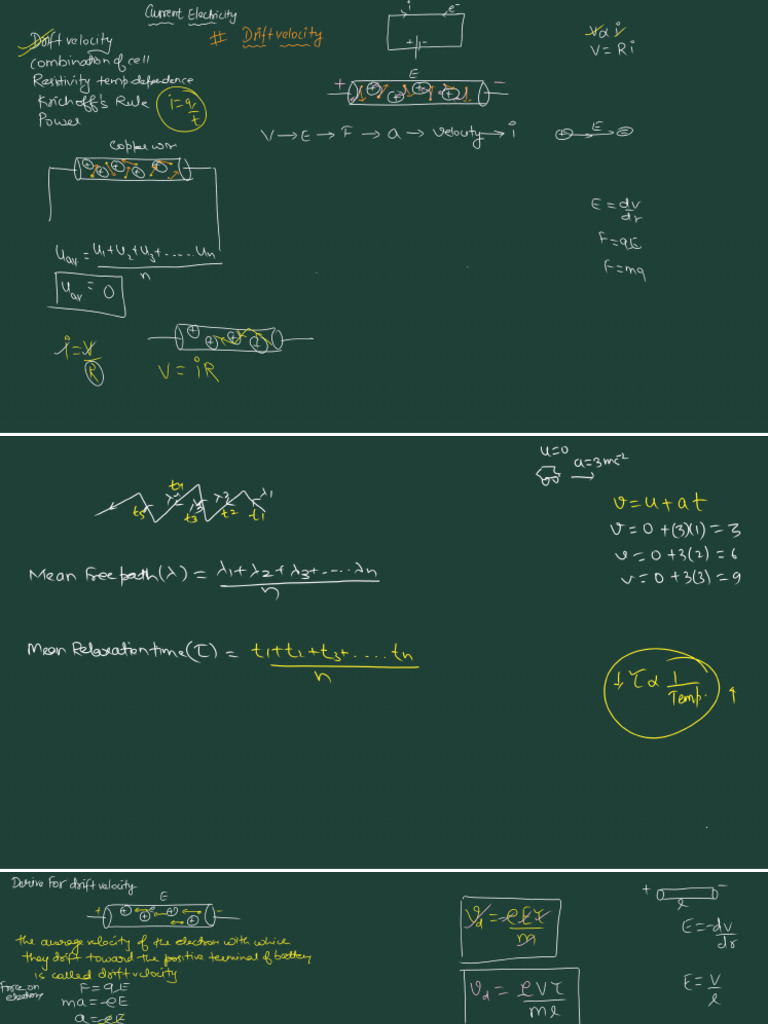 Current Electricity
Drift velocity
Combination of cell
Resistivity temp dependence
Krichoff's Rule
Power
i=q/t
# Drift velocity
i e⁻
+ -
V ∝ i
V = Ri
E
+ -
V → E → F → a → velocity → i
+ E -
E = dv/dr
F = qE
F = ma
Copper wir
u_av = u1+u2+u3+.....un / n
u_av = 0
i = V/R
V = iR
u=0
a=3ms⁻²
v = u + at
v = 0 + (3)(1) = 3
v = 0 + 3(2) = 6
v = 0 + 3(3) = 9
t5 t4 t3 t2 t1
λ4 λ3 λ1
Mean Free path (λ) = λ1+λ2+λ3+.....λn / n
Mean Relaxation time (τ) = t1+t2+t3+.....tn / n
↓ τ ∝ 1/Temp. ↑
Derive for drift velocity
E
+ -
the average velocity of the electron with which
they drift toward the positive terminal of battery
is called drift velocity
Force on
electron
F = qE
ma = -eE
a = -eE
v_d = -eEτ/m
v_d = eVτ/ml
+ -
l
E = -dv/dr
E = V/l